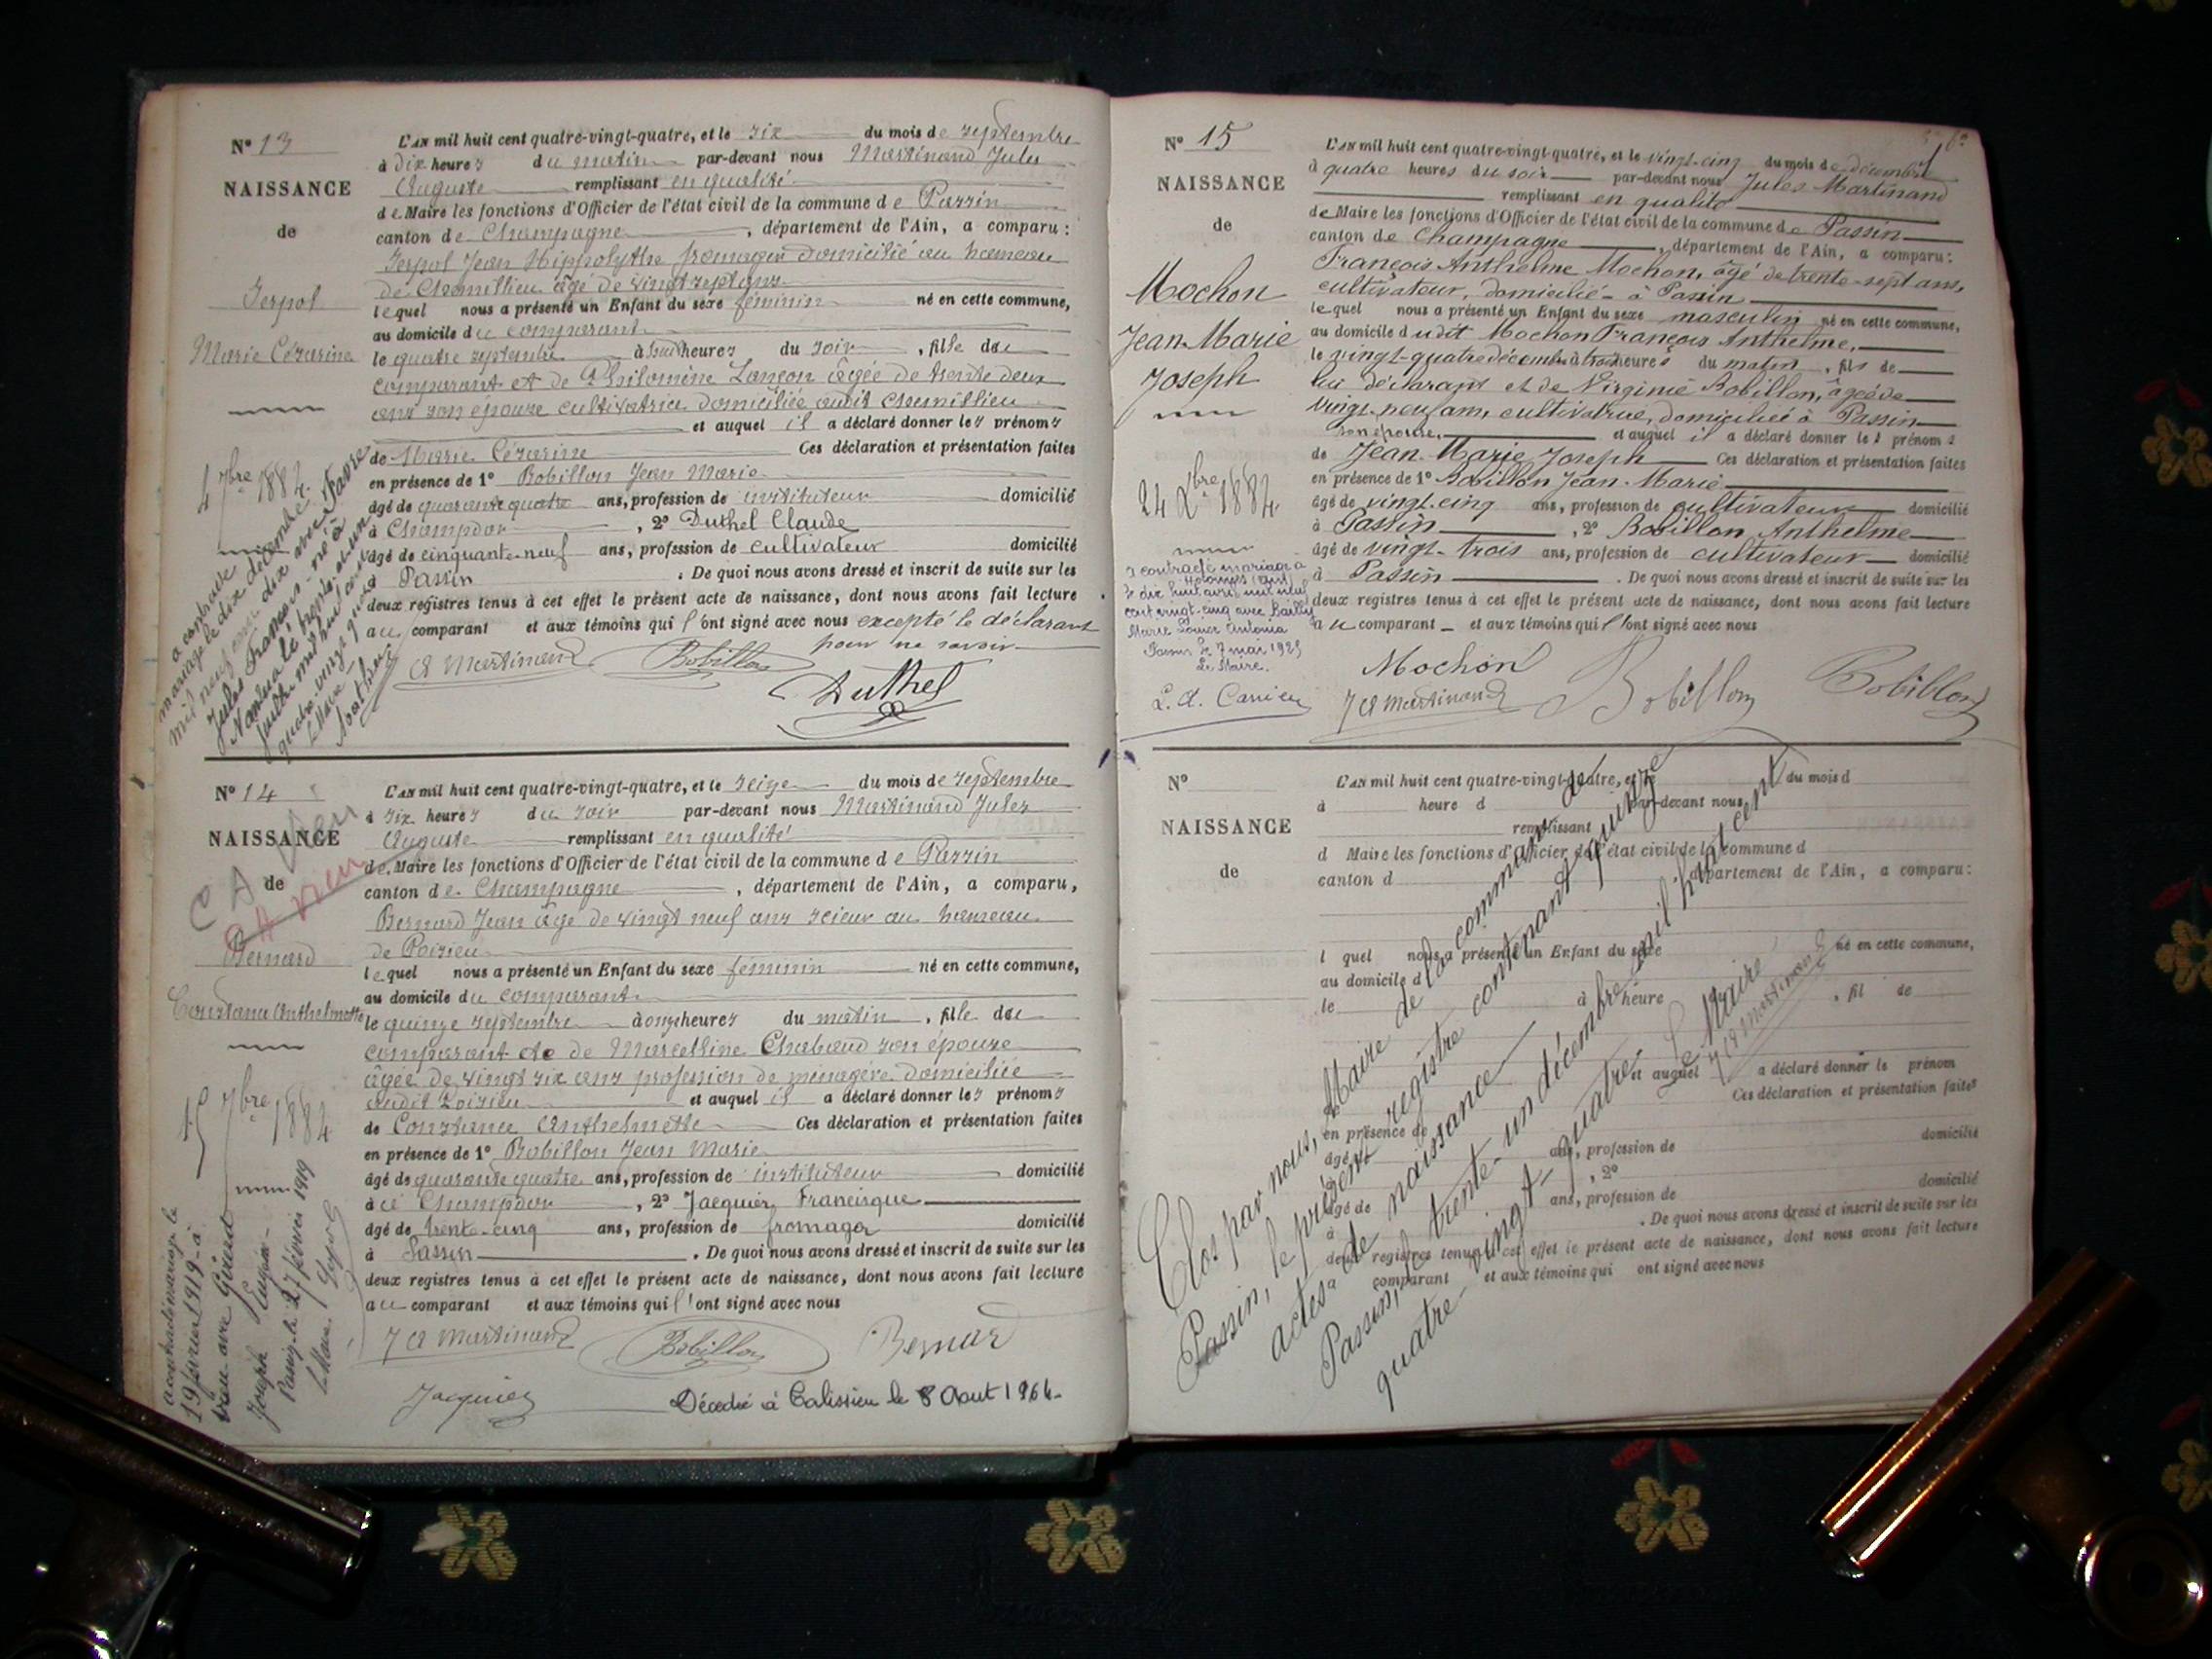 N° 13
NAISSANCE
de
Serpol
Marie Cézarine
4 7bre 1884.
a contracté
mariage le dix décembre
mil neuf cent dix avec Favre
Jules François né à
L'AN mil huit cent quatre-vingt-quatre, et le six du mois de septembre
à dix heures du matin par-devant nous Martinand Jules
Auguste remplissant en qualité
de Maire les fonctions d'Officier de l'état civil de la commune de Passin
canton de Champagne, département de l'Ain, a comparu:
Serpol Jean Hippolythe fromager domicilié au hameau
de Chemillieu âgé de vingt sept ans
lequel nous a présenté un Enfant du sexe féminin né en cette commune,
au domicile du comparant
le quatre septembre à huit heures du soir, fille du
comparant et de Philomène Lançon âgée de trente deux
ans son épouse cultivatrice domiciliée audit Chemillieu
et auquel il a déclaré donner les prénoms
de Marie Cézarine Ces déclaration et présentation faites
en présence de 1° Bobillon Jean Marie
âgé de quarante quatre ans, profession de instituteur domicilié
à Champdor, 2° Duthel Claude
âgé de cinquante-neuf ans, profession de cultivateur domicilié
à Passin. De quoi nous avons dressé et inscrit de suite sur les
deux registres tenus à cet effet le présent acte de naissance, dont nous avons fait lecture
au comparant et aux témoins qui l'ont signé avec nous excepté le déclarant
pour ne savoir
J A Martinand Bobillon
Duthel
N° 14
NAISSANCE
de
Bernard
Constance Anthelmette
15 7bre 1884
a contracté mariage le
19 février 1919 à
Vieu avec Girard
Joseph Eugène
Passin le 27 février 1919
Le Maire Serpol
L'AN mil huit cent quatre-vingt-quatre, et le seize du mois de septembre
à six heures du soir par-devant nous Martinand Jules
Auguste remplissant en qualité
de Maire les fonctions d'Officier de l'état civil de la commune de Passin
canton de Champagne, département de l'Ain, a comparu,
Bernard Jean âgé de vingt neuf ans scieur au hameau
de Poisieu
lequel nous a présenté un Enfant du sexe féminin né en cette commune,
au domicile du comparant
le quinze septembre à onze heures du matin, fille du
comparant et de Marcelline Chabaud son épouse
âgée de vingt six ans profession de ménagère domiciliée
audit Poisieu et auquel il a déclaré donner les prénoms
de Constance Anthelmette Ces déclaration et présentation faites
en présence de 1° Bobillon Jean Marie
âgé de quarante quatre ans, profession de instituteur domicilié
à Champdor, 2° Jacquier Francisque
âgé de trente-cinq ans, profession de fromager domicilié
à Passin. De quoi nous avons dressé et inscrit de suite sur les
deux registres tenus à cet effet le présent acte de naissance, dont nous avons fait lecture
au comparant et aux témoins qui l'ont signé avec nous
J A Martinand Bobillon Bernard
Jacquier Décédée à Talissieu le 8 Aout 1964
N° 15
NAISSANCE
de
Mochon
Jean-Marie
Joseph
24 Xbre 1884
a contracté mariage à
le dix huit avril mil neuf
cent vingt-cinq avec Bailly
Marie Louise Antonia
Passin le 7 mai 1925
Le Maire.
L'AN mil huit cent quatre-vingt-quatre, et le vingt-cinq du mois de décembre
à quatre heures du soir par-devant nous Jules Martinand
remplissant en qualité
de Maire les fonctions d'Officier de l'état civil de la commune de Passin
canton de Champagne, département de l'Ain, a comparu:
François Anthelme Mochon, âgé de trente-sept ans,
cultivateur, domicilié à Passin
lequel nous a présenté un Enfant du sexe masculin né en cette commune,
au domicile dudit Mochon François Anthelme,
le vingt-quatre décembre à trois heures du matin, fils de
lui déclarant et de Virginie Bobillon, âgée de
vingt-neuf ans, cultivatrice, domiciliée à Passin
son épouse, et auquel il a déclaré donner les prénoms
de Jean-Marie Joseph Ces déclaration et présentation faites
en présence de 1° Bobillon Jean-Marie
âgé de vingt-cinq ans, profession de cultivateur domicilié
à Passin, 2° Bobillon Anthelme
âgé de vingt-trois ans, profession de cultivateur domicilié
à Passin. De quoi nous avons dressé et inscrit de suite sur les
deux registres tenus à cet effet le présent acte de naissance, dont nous avons fait lecture
au comparant et aux témoins qui l'ont signé avec nous
Mochon
J A Martinand Bobillon Bobillon
N°
NAISSANCE
de
L'AN mil huit cent quatre-vingt-quatre, et le du mois d
à heure d par-devant nous
remplissant
d Maire les fonctions d'Officier de l'état civil de la commune d
canton d département de l'Ain, a comparu:
l quel nous a présenté un Enfant du sexe né en cette commune,
au domicile d
le à heure, fil de
et auquel a déclaré donner le prénom
Ces déclaration et présentation faites
en présence de
âgé ans, profession de domicilié
à, 2°
âgé de ans, profession de domicilié
à. De quoi nous avons dressé et inscrit de suite sur les
deux registres tenus à cet effet le présent acte de naissance, dont nous avons fait lecture
a comparant et aux témoins qui ont signé avec nous
Clos par nous, Maire de la commune de
Passin, le présent registre contenant quinze
actes de naissance
Passin, le trente-un décembre mil huit cent
quatre-vingt-quatre.
Le Maire
J A Martinand